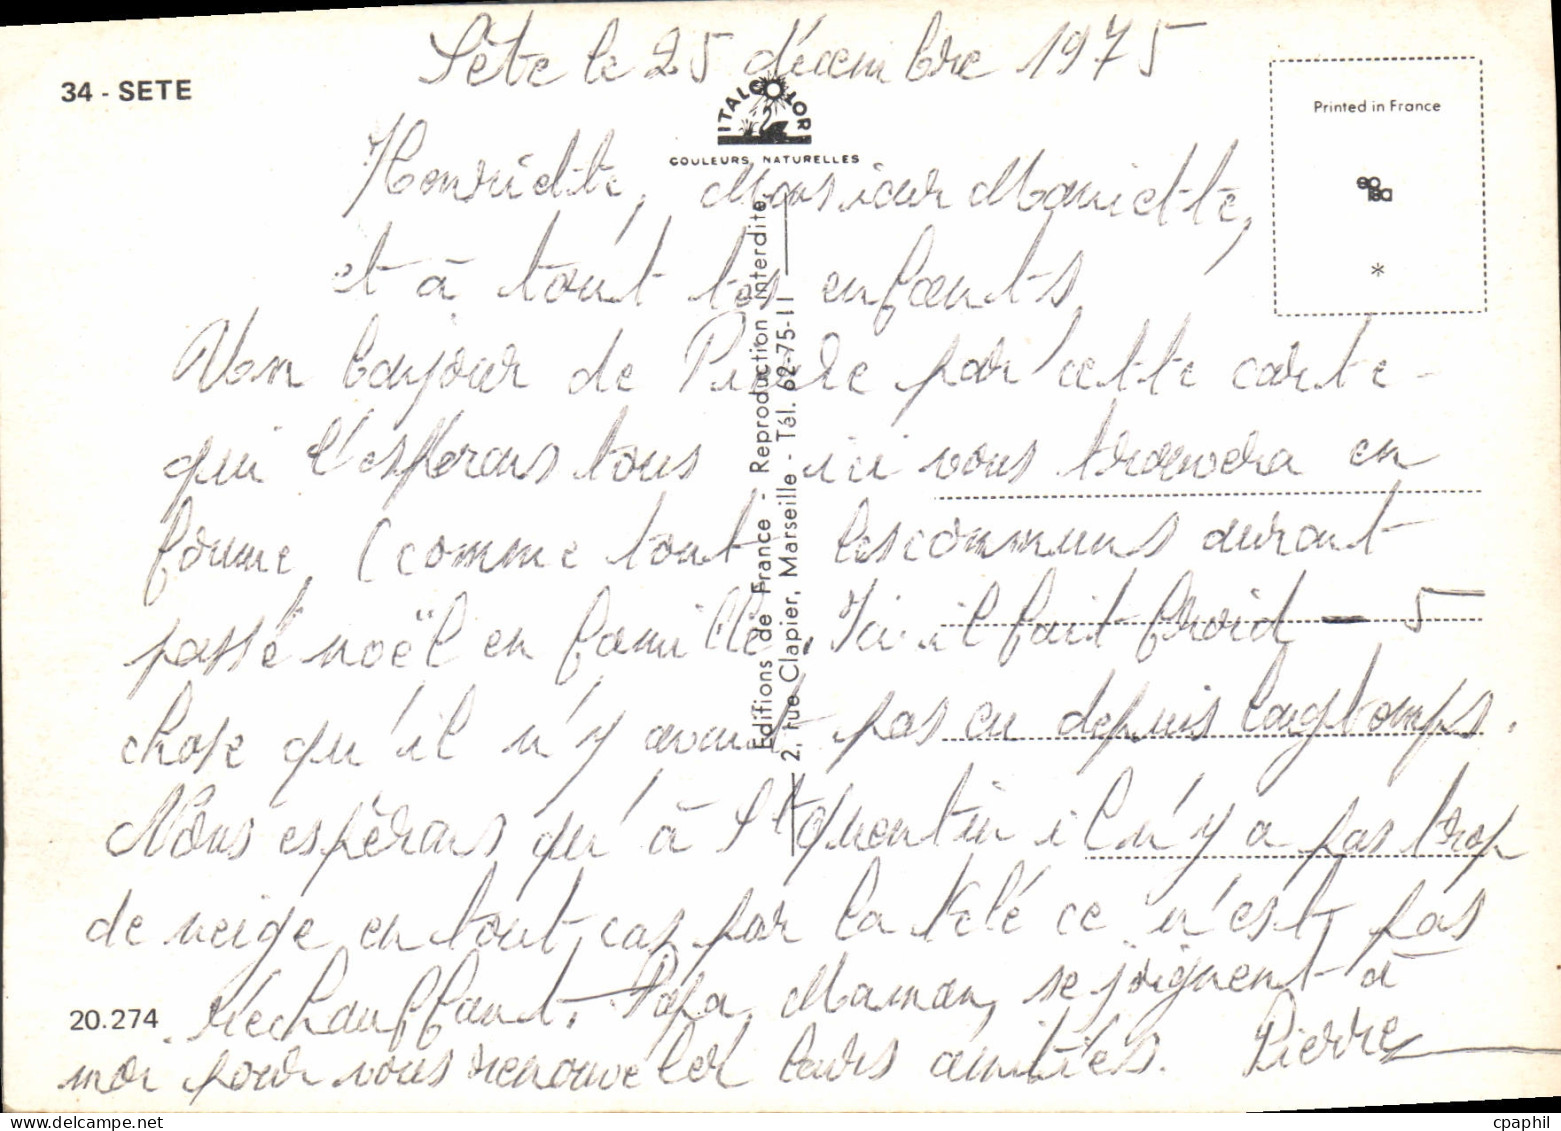 Sète le 25 décembre 1975
34 - SETE
ITALCOLOR
COULEURS NATURELLES
Printed in France
*
Henriette, Monsieur Mariette,
et à tout les enfants
Un bonjour de Pierre par cette carte
qui l'espérons tous ici vous trouvera en
forme, (comme tout les communs auront
passé noël en famille. Ici il fait froid - 5
chose qu'il n'y avait pas eu depuis longtemps.
Nous espérons qu'à St Quentin il n'y a pas trop
de neige en tout cas par la télé ce n'est pas
réchauffant. Papa, Maman, se joignent à
moi pour vous renouveler leurs amitiés. Pierre
20.274
Editions de France - Reproduction interdite.
2, rue Clapier, Marseille - Tél. 62-75-11
cpaphil